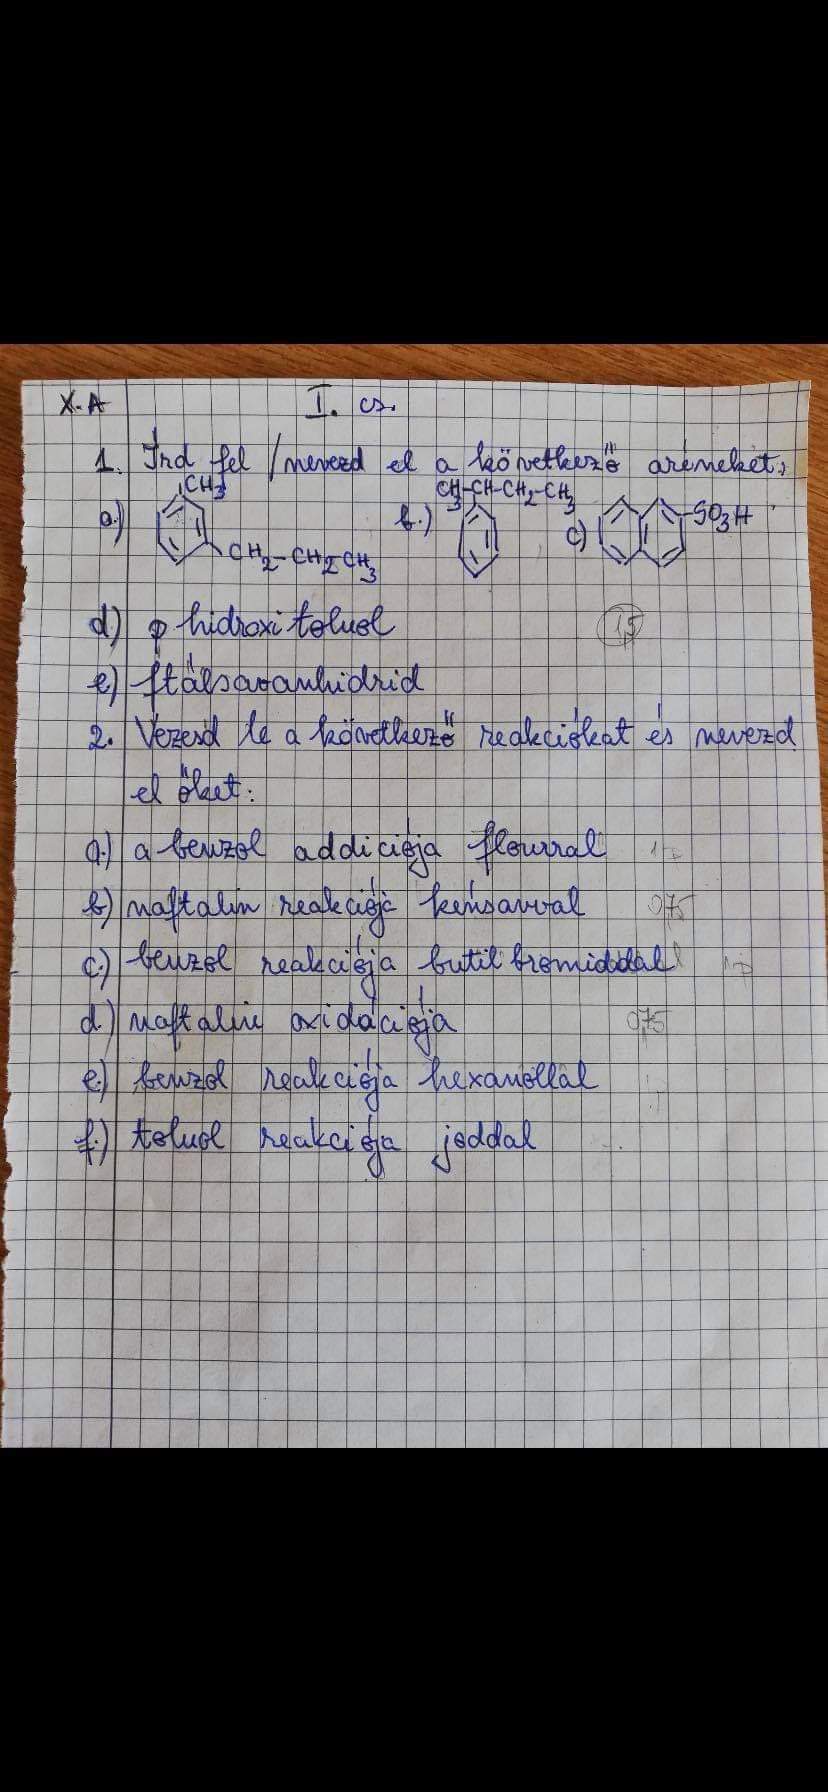 X. A I. cs.
1. Írd fel / nevezd el a következő aréneket:
a.) CH3 b.) CH3-CH-CH2-CH3 c) SO3H
CH2-CH2-CH3
d) p hidroxi toluol 1,5
e) ftálsavanhidrid
2. Vezesd le a következő reakciókat és nevezd
el őket:
a.) a benzol addiciója flourral 1p
b) naftalin reakciója kénsavval 0,75
c.) benzol reakciója butil bromiddal 1p
d) naftalin oxidációja 0,75
e.) benzol reakciója hexanollal
f.) toluol reakciója jóddal